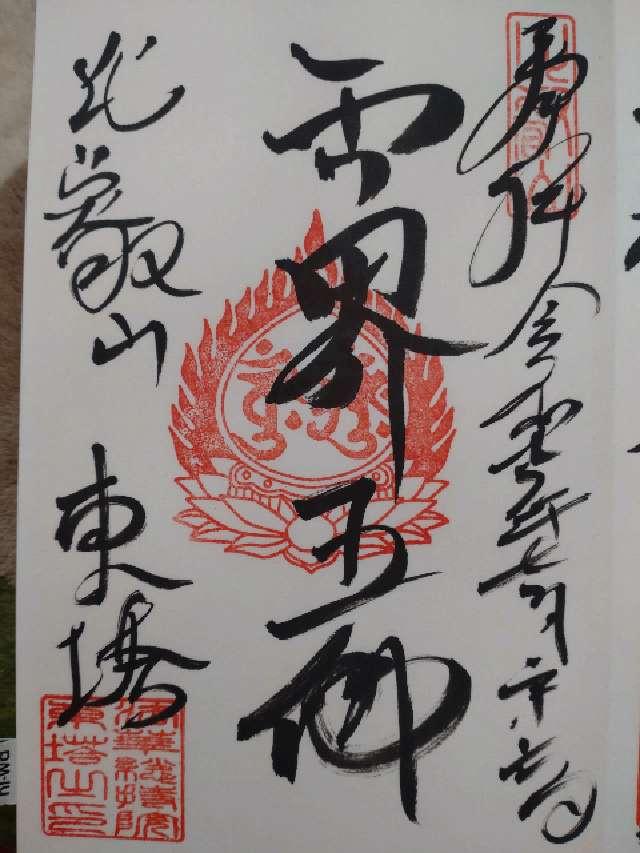 奉拝 令和 年七月二十 日
両界五佛
比叡山 東塔
東塔之印